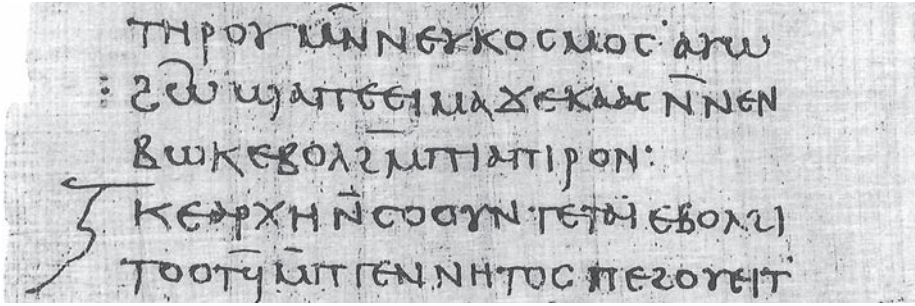 ⲧⲏⲣⲟⲩ ⲙⲛ̄ ⲛⲉⲩⲕⲟⲥⲙⲟⲥ· ⲁⲩⲱ
: ϩⲱ̄ ϣⲁ ⲡⲉⲉⲓⲙⲁ ϫⲉⲕⲁⲁⲥ ⲛ̄ⲛⲉⲛ
ⲃⲱⲕ ⲉⲃⲟⲗ ϩⲙ̄ ⲡⲓⲁⲡⲓⲣⲟⲛ:
ⲕⲉⲁⲣⲭⲏ ⲛ̄ⲥⲟⲟⲩⲛ· ⲧⲉⲧⲁⲓ̈ ⲉⲃⲟⲗ ϩⲓ
ⲧⲟⲟⲧϥ̄ ⲙ̄ⲡⲅⲉⲛⲛⲏⲧⲟⲥ ⲡⲉϩⲟⲩⲉⲓⲧ